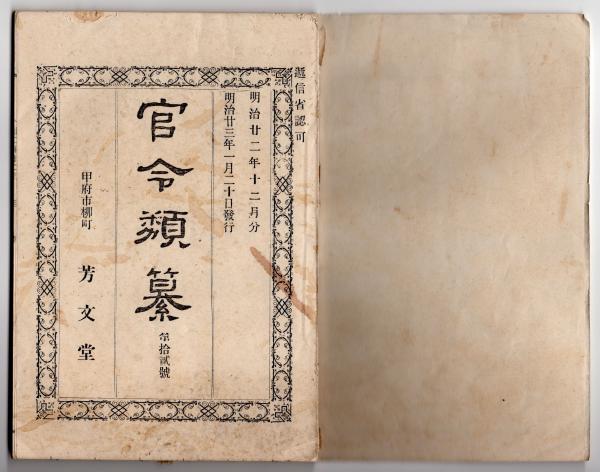 遞信省認可
明治廿二年十二月分
明治廿三年一月二十日發行
官令類纂
第拾貳號
甲府市柳町
芳文堂